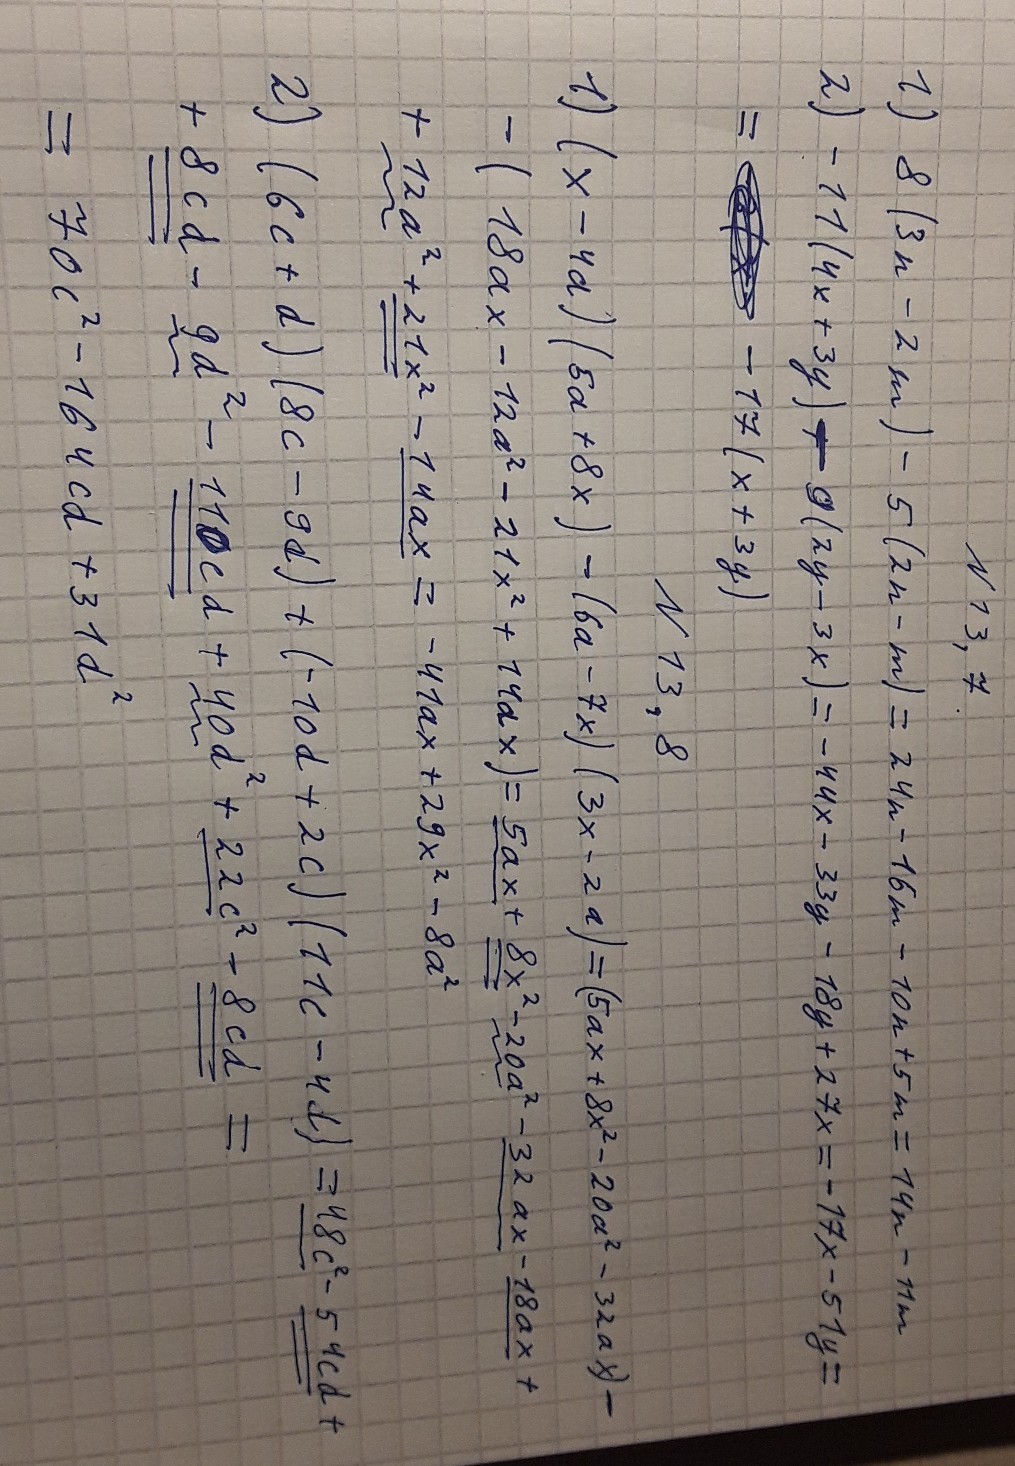 N 13,7.
1) 8(3n-2m)-5(2n-m)=24n-16m-10n+5m=14n-11m
2) -11(4x+3y)-9(2y-3x)=-44x-33y-18y+27x=-17x-51y=
= -17(x+3y)
N 13,8
1) (x-4a)(5a+8x)-(6a-7x)(3x-2a)=(5ax+8x²-20a²-32ax)-
-(18ax-12a²-21x²+14ax)=5ax+8x²-20a²-32ax-18ax+
+12a²+21x²-14ax=-41ax+29x²-8a²
2) (6c+d)(8c-9d)+(-10d+2c)(11c-4d)=48c²-54cd+
+8cd-9d²-110cd+40d²+22c²-8cd=
= 70c²-164cd+31d²